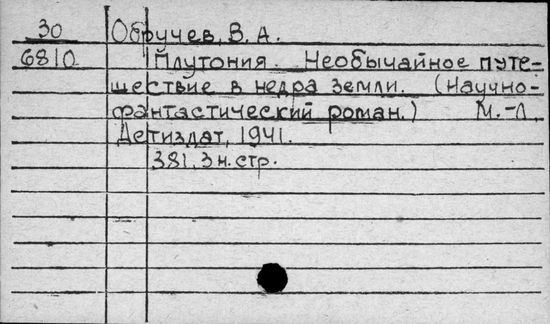 30 Обручев, В. А.
6810 Плутония. Необычайное путе-
шествие в недра земли. (Научно-
фантастический роман.) М.-Л.
Детиздат, 1941.
381, 3 н. стр.